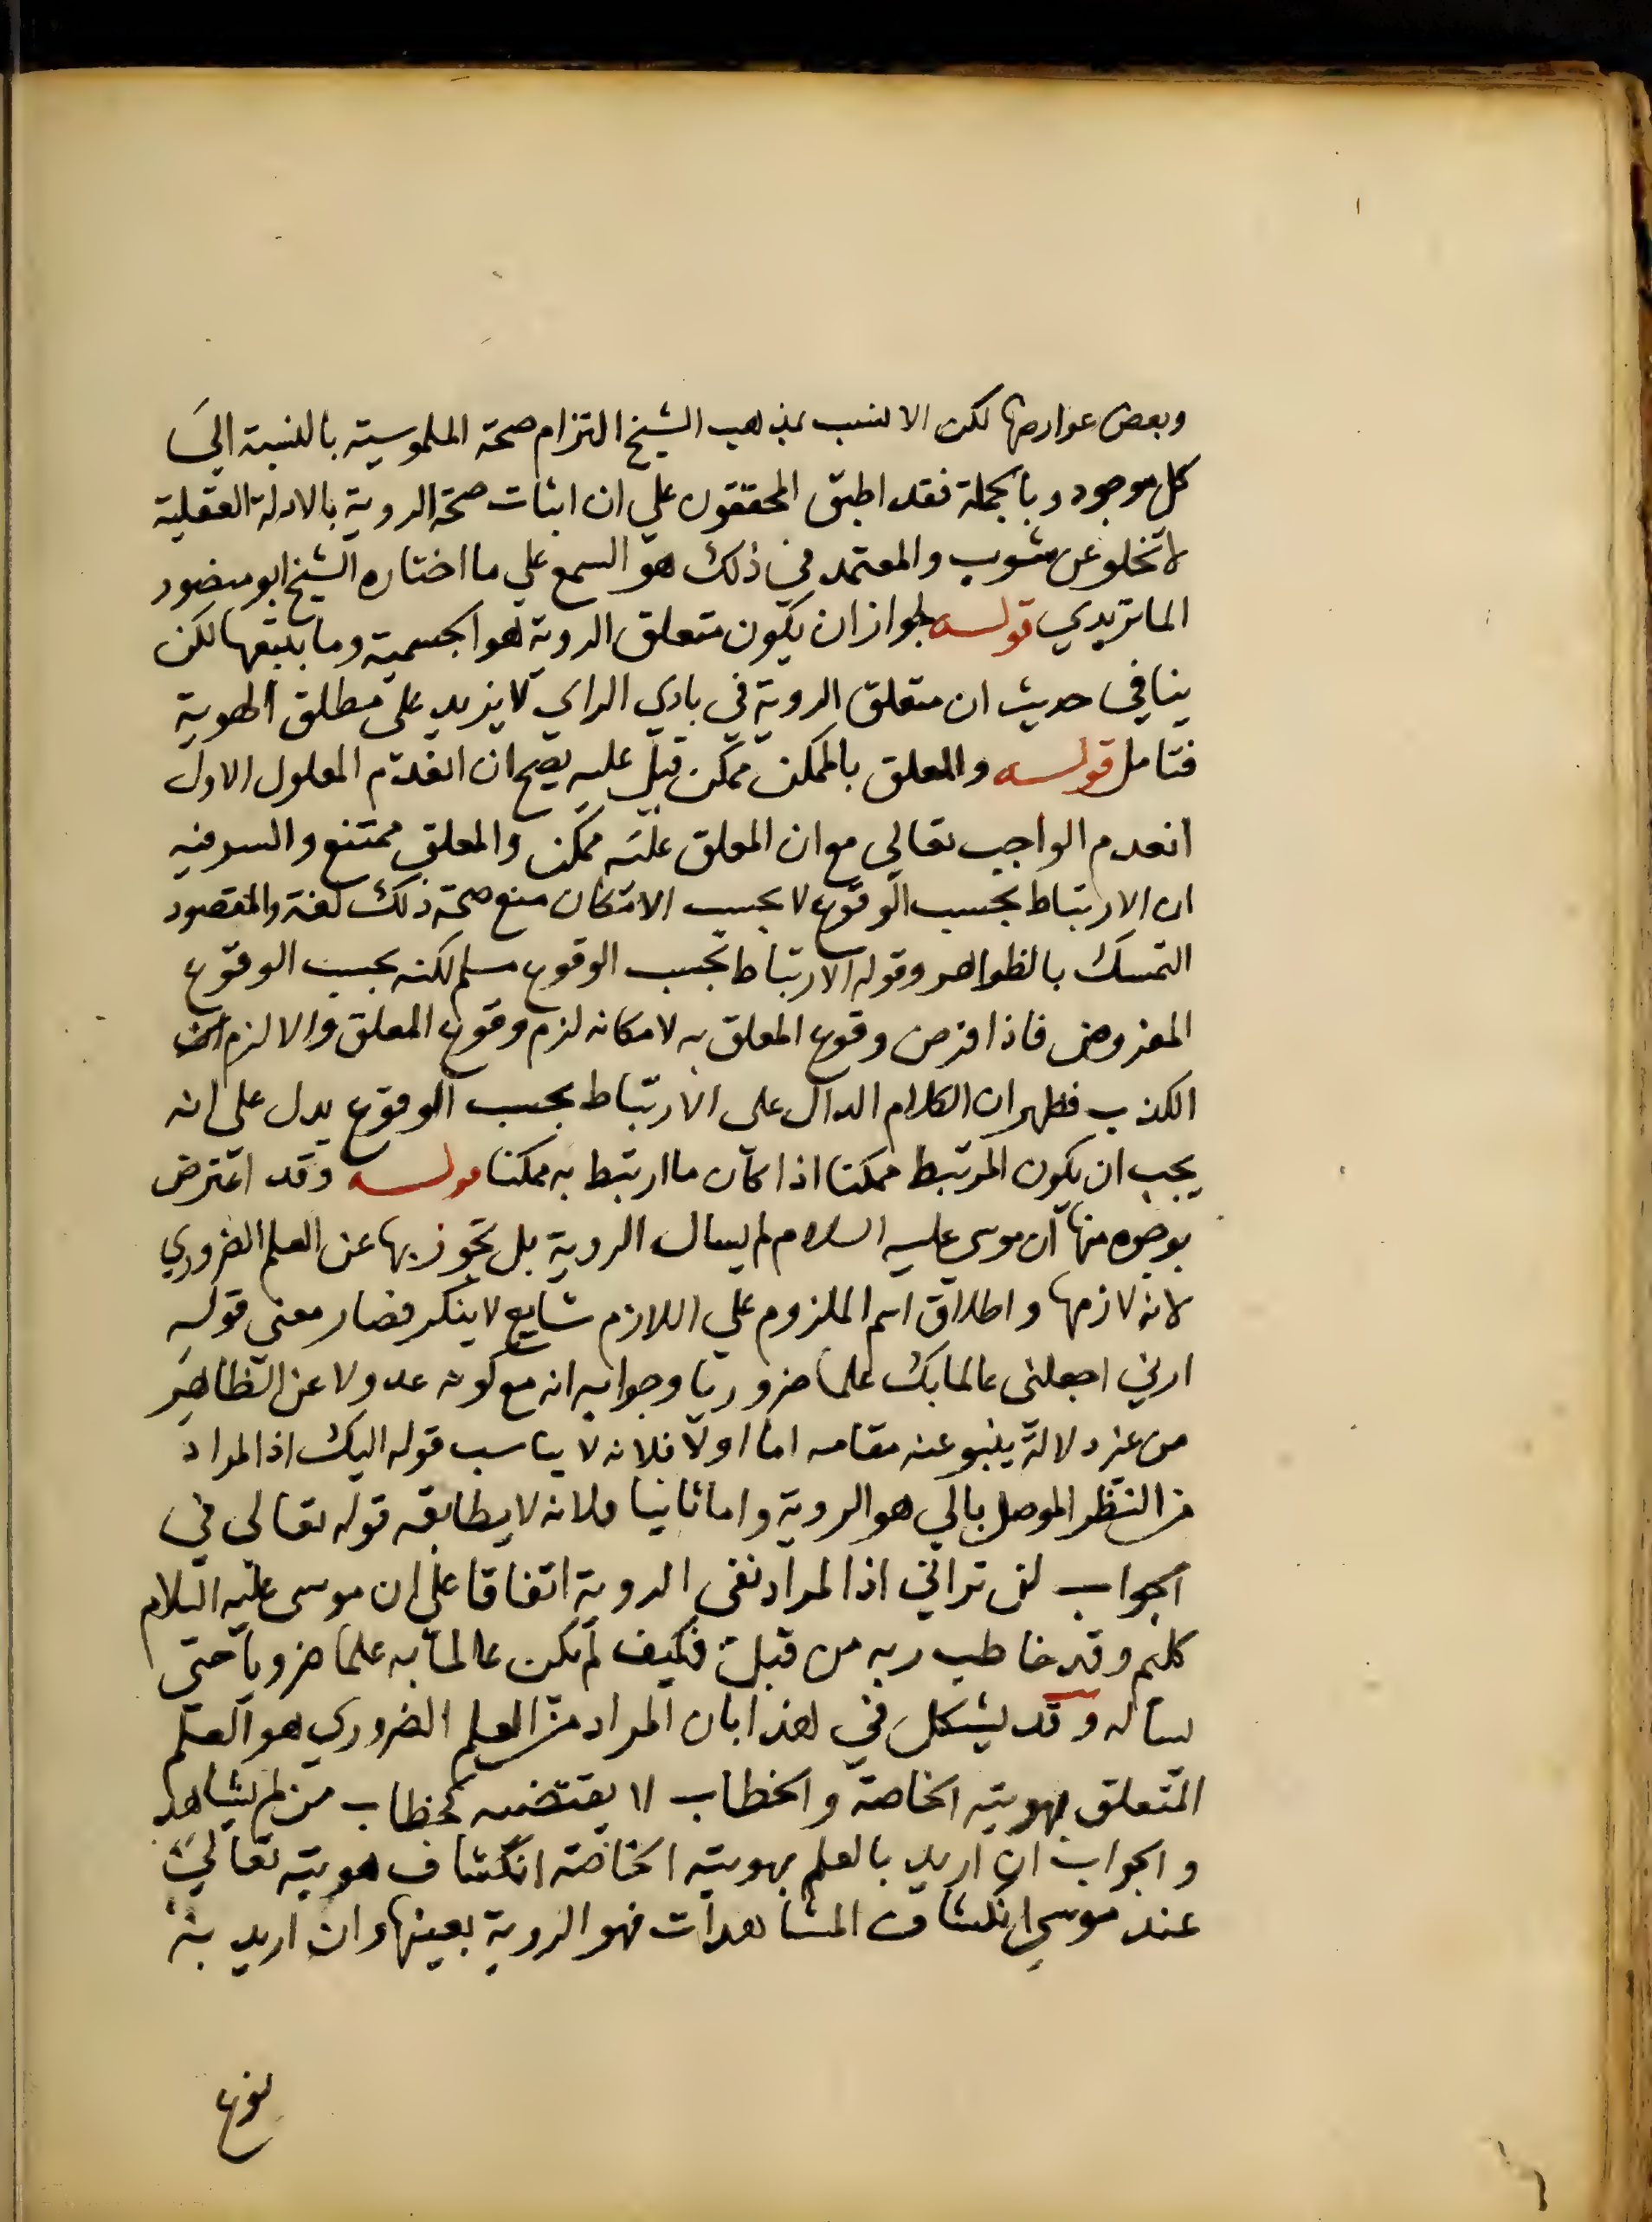 وبعض عوارضها لكن الانسب بمذهب الشيخ التزام صحة الملموسية بالنسبة الي
كل موجود وبالجملة فقد اطبق المحققون علي ان اثبات صحة الروية بالادلة العقلية
لا تخلو عن شوب والمعتمد في ذلك هو السمع علي ما اختاره الشيخ ابو منصور
الماتريدي قوله لجواز ان يكون متعلق الروية هو الجسمية وما يتبعها لكن
ينافي حديث ان متعلق الروية في بادي الراي لا يزيد علي مطلق الهوية
فتامل قوله والمعلق بالممكن ممكن قيل عليه يصح ان انعدم المعلول الاول
انعدم الواجب تعالي مع ان المعلق عليه ممكن والمعلق ممتنع والسر فيه
ان الارتباط بحسب الوقوع لا بحسب الامكان منع صحة ذلك لغة والمقصود
التمسك بالظواهر وقوله الارتباط بحسب الوقوع مسلم لكنه بحسب الوقوع
المفروض فاذا فرض وقوع المعلق به لامكانه لزم وقوع المعلق والا لزم
الكذب فظهر ان الكلام الدال على الارتباط بحسب الوقوع يدل على انه
يجب ان يكون المرتبط ممكنا اذا كان ما ارتبط به ممكنا قوله وقد اعترض
بوجوه منها ان موسي عليه السلام لم يسال الروية بل تجوز بها عن العلم الضروري
لانه لازمها واطلاق اسم الملزوم علي اللازم شايع لا ينكر فصار معني قوله
ارني اجعلني عالما بك علما ضروريا وجوابه انه مع كونه عدولا عن الظاهر
من غير دلالة ينبو عنه مقامه اما اولا فلانه لا يناسب قوله اليك اذ المراد
من النظر الموصل بالي هو الروية واما ثانيا فلانه لا يطابقه قوله تعالى في
الجواب لن تراني اذ المراد نفي الروية اتفاقا علي ان موسى عليه السلام
كلم وقد خاطب ربه من قبل فكيف لم يكن عالما به علما ضرويا حتى
يساله وقد يشكل في هذا بان المراد من العلم الضروري هو العلم
المتعلق بهويته الخاصة والخطاب لا يقتضيه كخطاب من لم يشاهد
والجواب ان اريد بالعلم بهويته الخاصة انكشاف هويته تعالي
عند موسي انكشاف المشاهدات فهو الروية بعينها وان اريد به
نوع